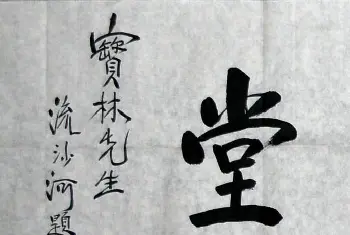 堂
寶林先生
流沙河題